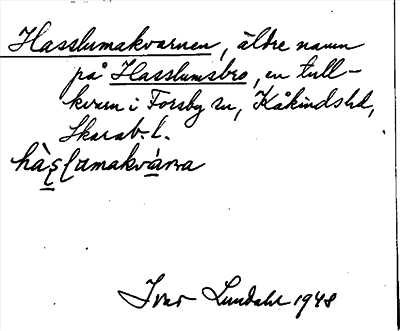 Hasslumakvarnen, äldre namn
på Hasslumsbro, en tull-
kvarn i Forsby sn, Kåkindshd,
Skarab.l.
Ivar Lundahl 1948